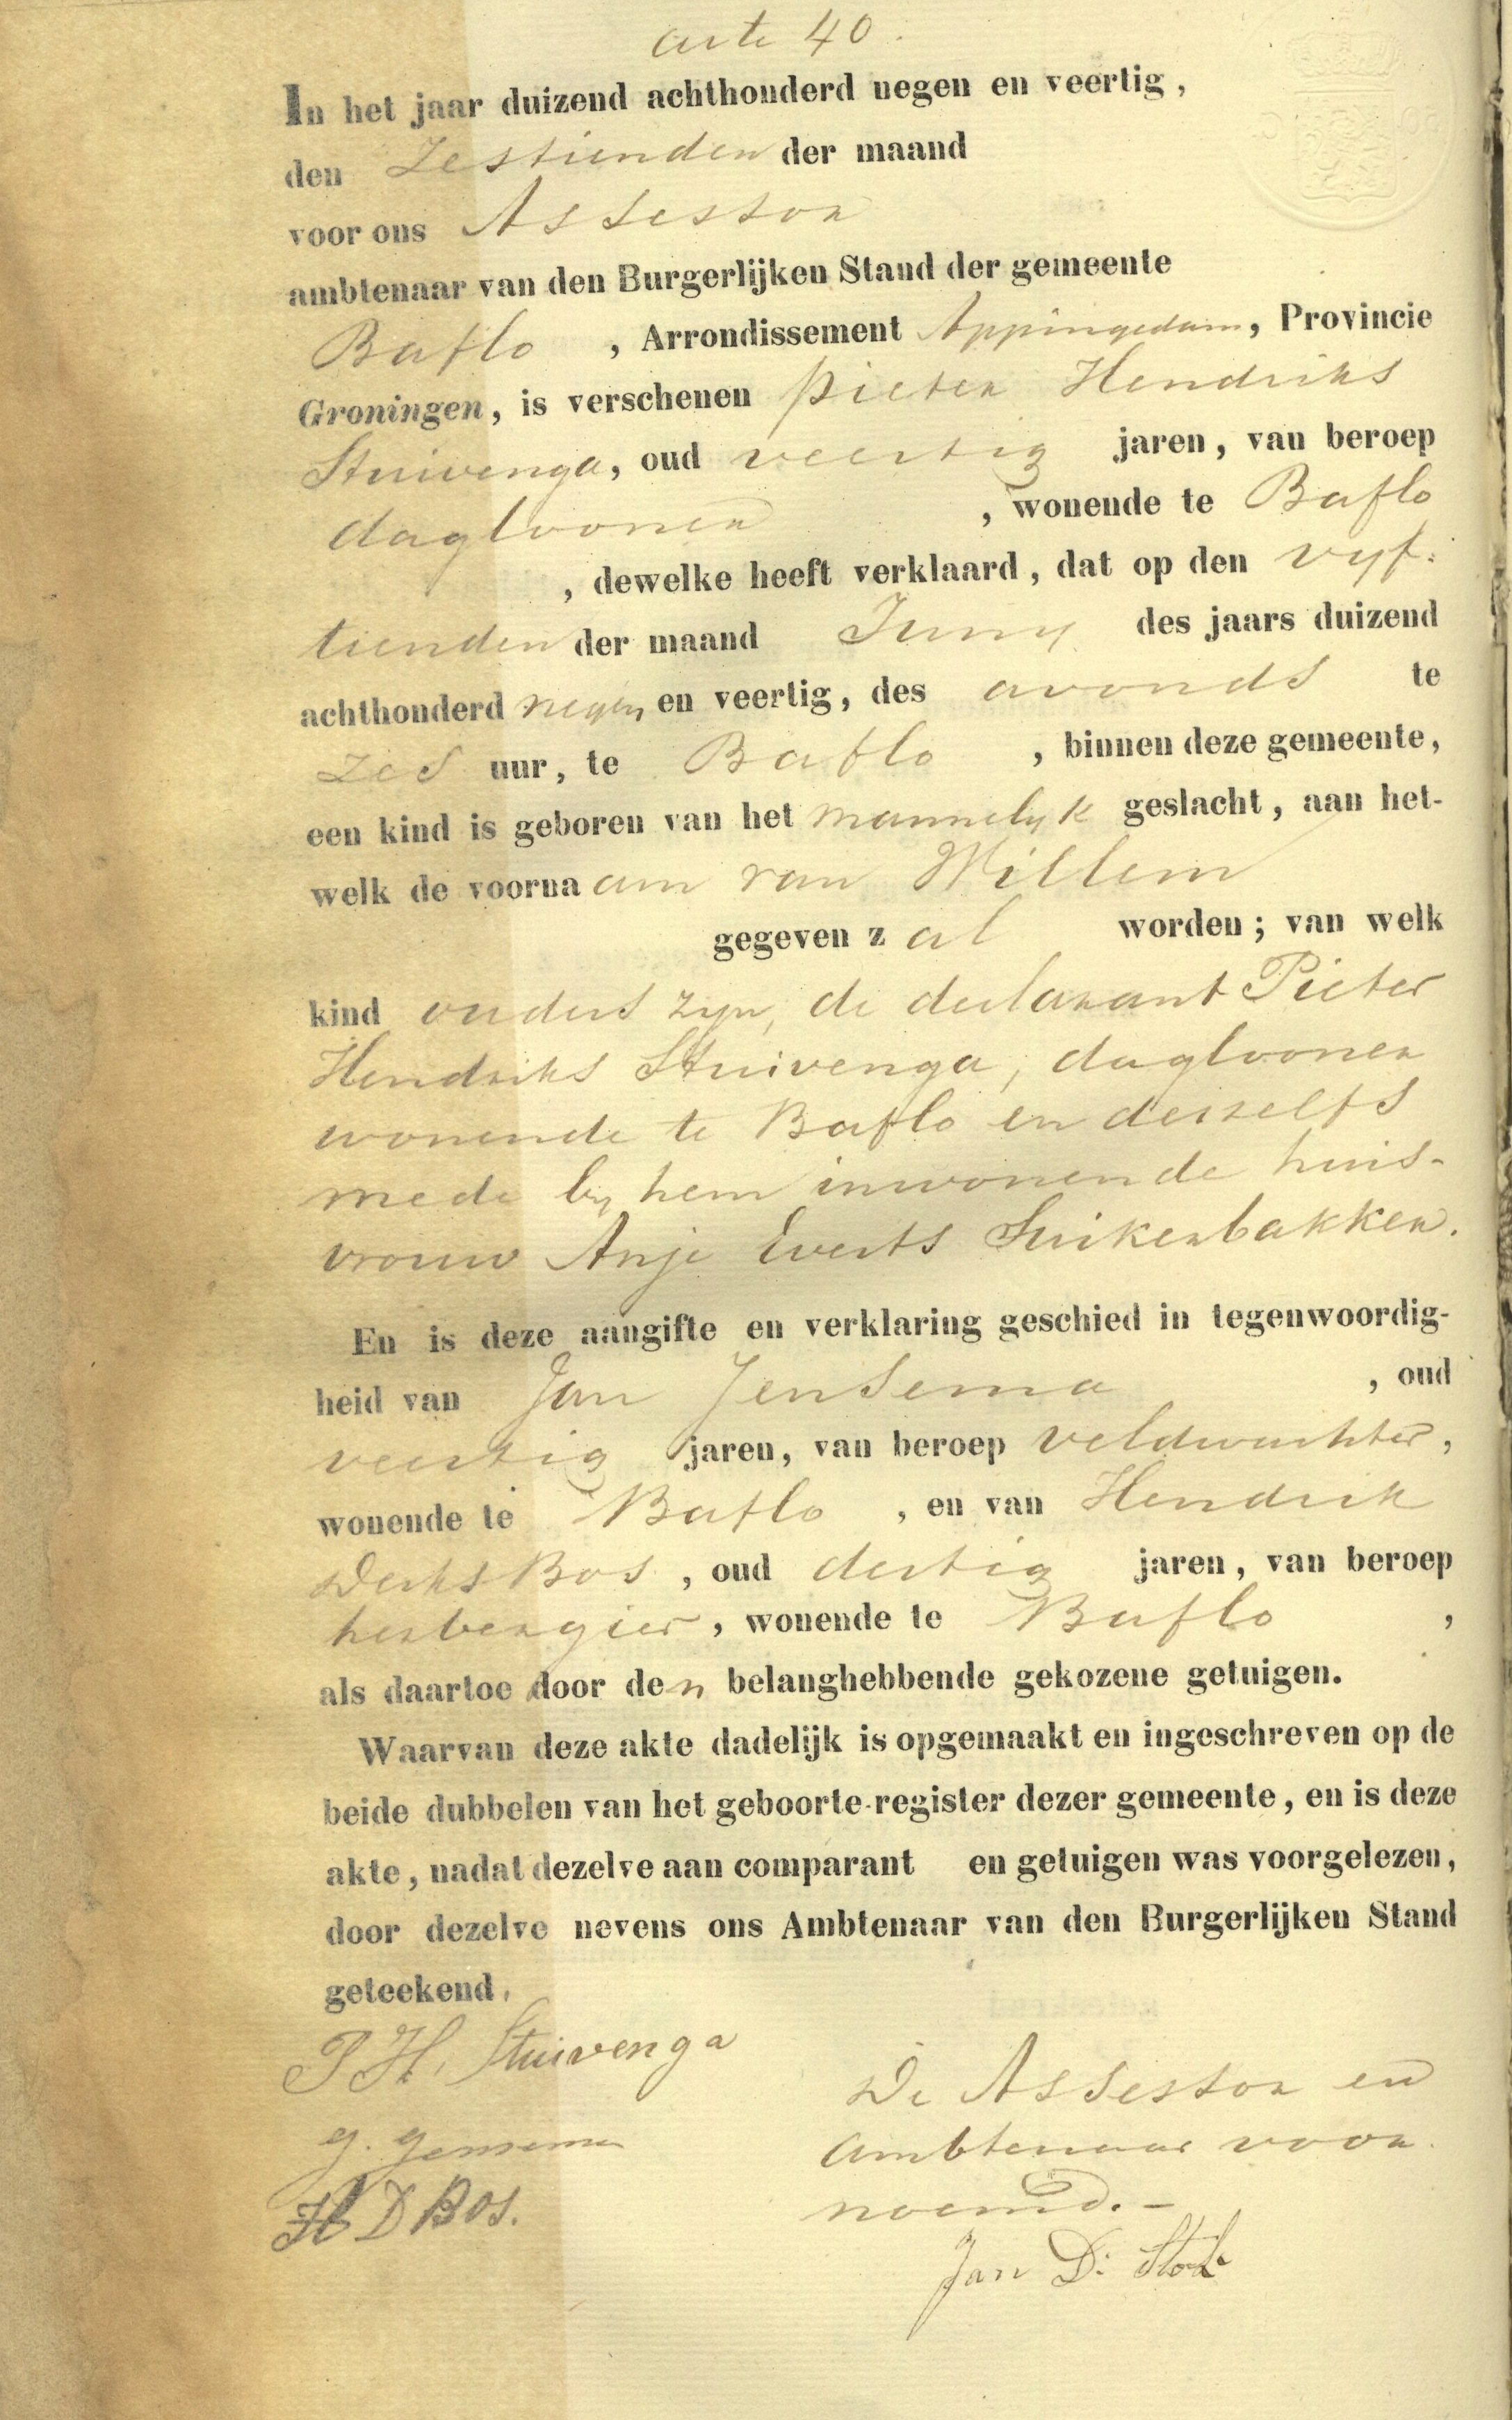 acte 40.
In het jaar duizend achthonderd negen en veertig,
den Zestienden der maand
voor ons Assessor
ambtenaar van den Burgerlijken Stand der gemeente
Baflo, Arrondissement Appingedam, Provincie
Groningen, is verschenen Pieter Hendriks
Stuivenga, oud veertig jaren, van beroep
daglooner, wonende te Baflo
, dewelke heeft verklaard, dat op den vyf-
tienden der maand Juny des jaars duizend
achthonderd negen en veertig, des avonds te
zes uur, te Baflo, binnen deze gemeente,
een kind is geboren van het mannelyk geslacht, aan het-
welk de voornaam van Willem
gegeven zal worden; van welk
kind ouders zyn, de declarant Pieter
Hendriks Stuivenga, daglooner
wonende te Baflo en deszelfs
mede by hem inwonende huis-
vrouw Anje Everts Suikerbakker.
En is deze aangifte en verklaring geschied in tegenwoordig-
heid van Jan Jensema, oud
veertig jaren, van beroep veldwachter,
wonende te Baflo, en van Hendrik
Derks Bos, oud dertig jaren, van beroep
herbergier, wonende te Baflo,
als daartoe door den belanghebbende gekozene getuigen.
Waarvan deze akte dadelijk is opgemaakt en ingeschreven op de
beide dubbelen van het geboorte-register dezer gemeente, en is deze
akte, nadat dezelve aan comparant en getuigen was voorgelezen,
door dezelve nevens ons Ambtenaar van den Burgerlijken Stand
geteekend.
P H. Stuivenga
De Assessor en
J. Jensema
Ambtenaar voor
H D Bos.
noemd.-
Jan D: